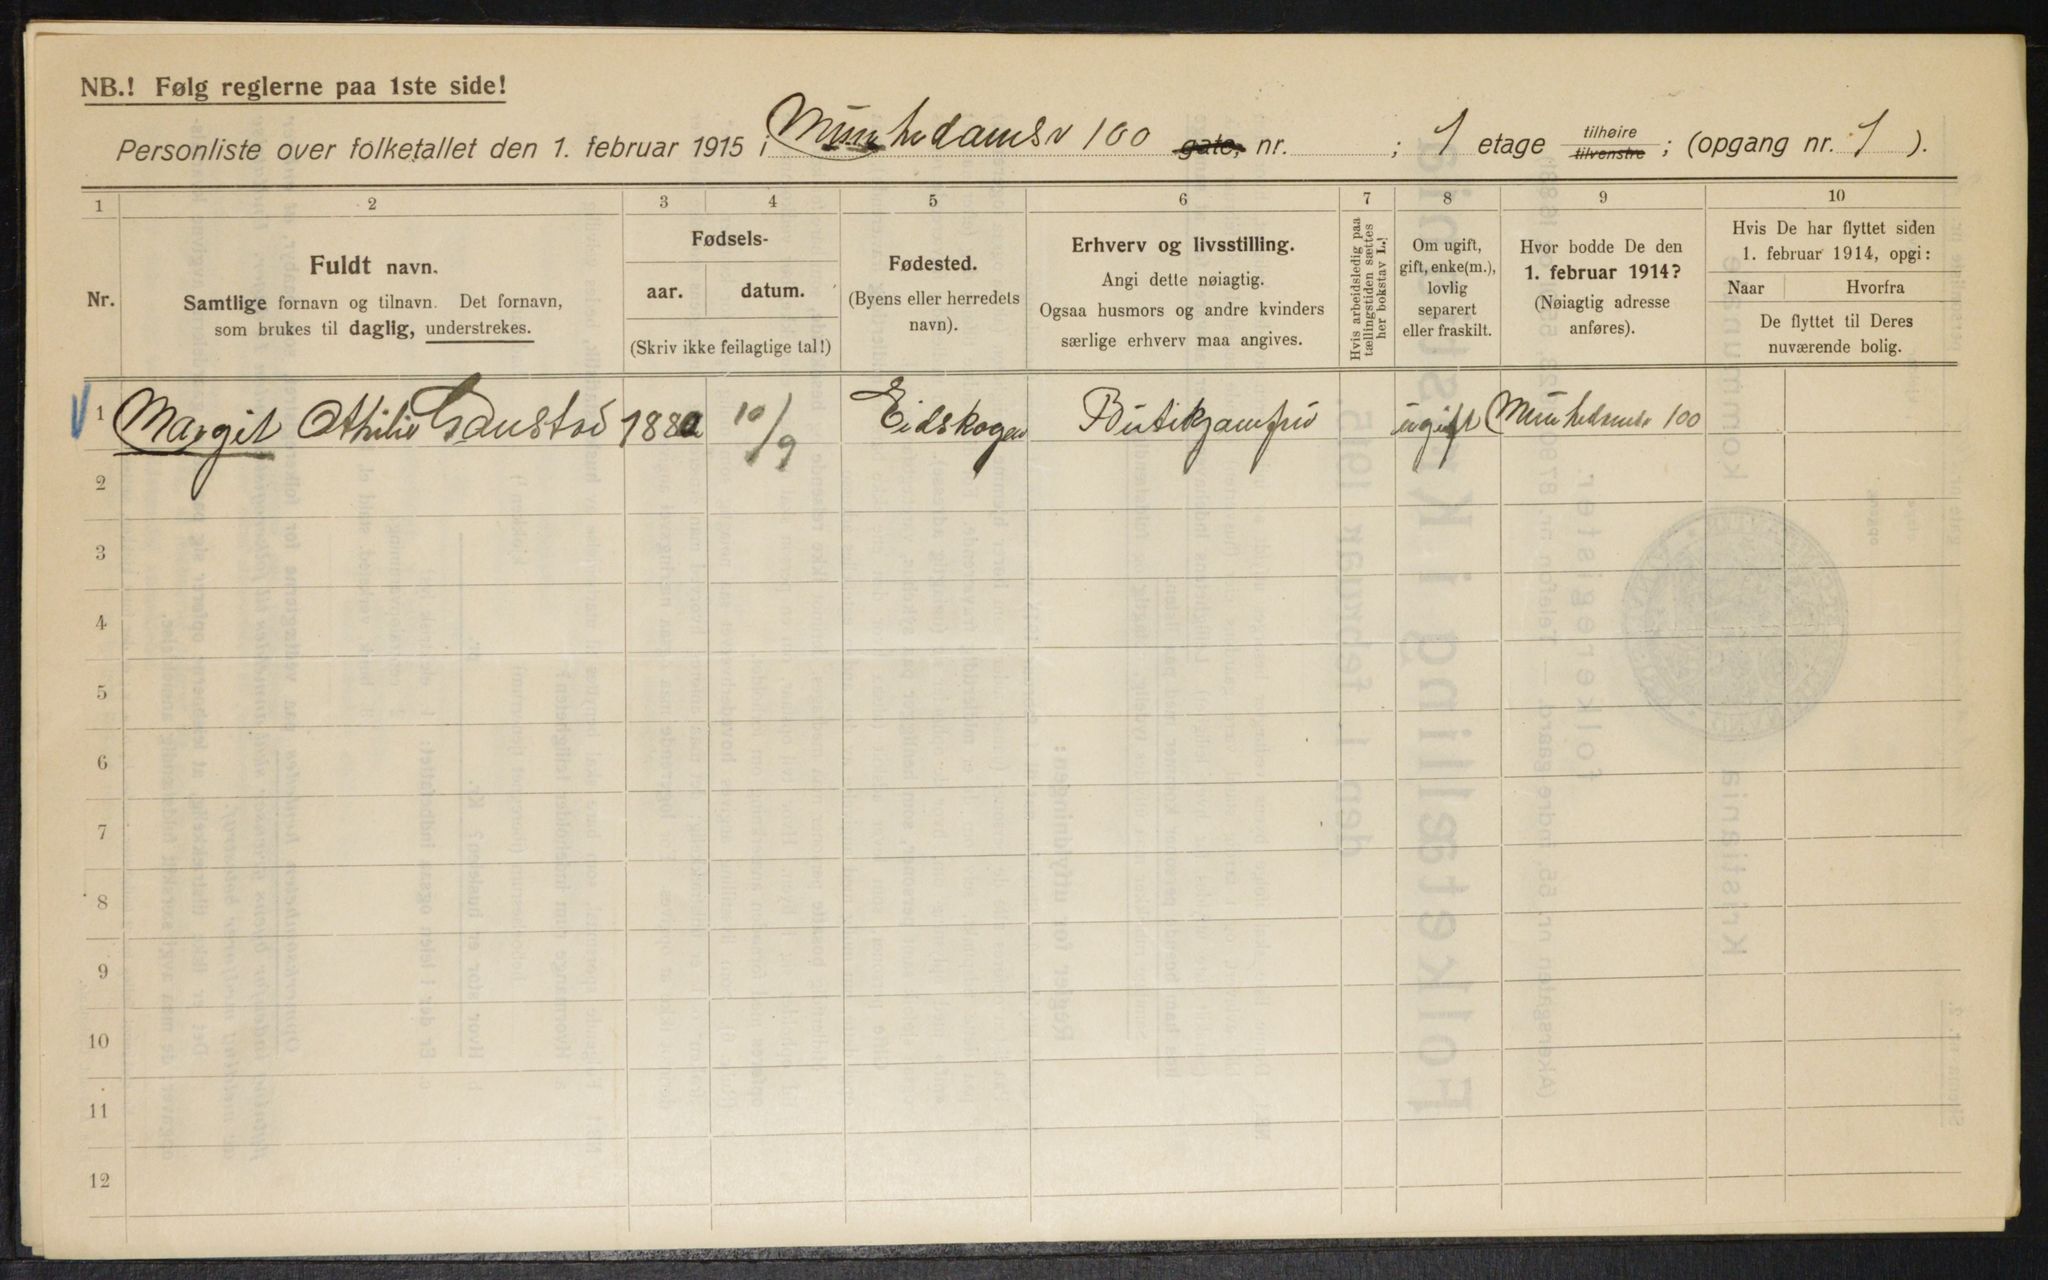 NB.! Følg reglerne paa 1ste side!
Personliste over folketallet den 1. februar 1915 i Munkedamsv 100 gate, nr. ; 1 etage tilhøire tilvenstre ; (opgang nr. 1 ).
1 2 3 4 5 6 7 8 9 10
Nr.
Fuldt navn.
Samtlige fornavn og tilnavn. Det fornavn,
som brukes til daglig, understrekes.
Fødsels-
aar. datum.
(Skriv ikke feilagtige tal!)
Fødested.
(Byens eller herredets
navn).
Erhverv og livsstilling.
Angi dette nøiagtig.
Ogsaa husmors og andre kvinders
særlige erhverv maa angives.
Hvis arbeidsledig paa
tællingstiden sættes
her bokstav L.!
Om ugift,
gift, enke(m.),
lovlig
separert
eller fraskilt.
Hvor bodde De den
1. februar 1914?
(Nøiagtig adresse
anføres).
Hvis De har flyttet siden
1. februar 1914, opgi:
Naar Hvorfra
De flyttet til Deres
nuværende bolig.
1 Margit Athilie 10/9 Eidskogen Butikjomfru ugift Munkedamsv 100
2
3
4
5
6
7
8
9
10
11
12